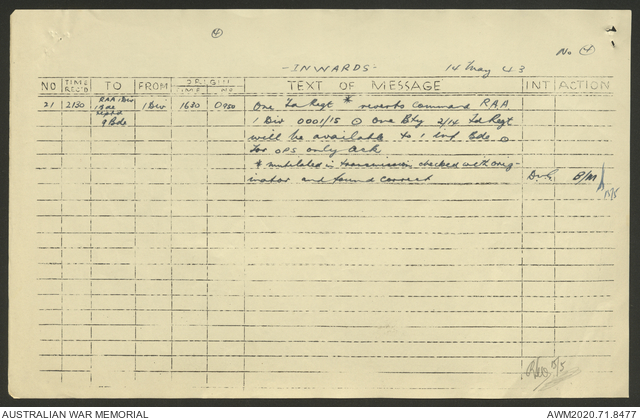 4
No 4
-INWARDS-
14 May 43
NO TIME REC'D TO FROM ORIG'II TIME NO TEXT OF MESSAGE INT ACTION
21 2130 RAA 1 Div 1 Bde 9 Bde 1 Div 1630 0950 One Fd Regt * reverts command RAA
1 Div 0001/15 ⊙ One Bty 2/14 Fd Regt
will be available to 1 inf Bde ⊙
For OPS only Ack
* mutilated in transmission checked with orig-
inator and found correct B/M
15/5
15/5
AUSTRALIAN WAR MEMORIAL
AWM2020.71.8477